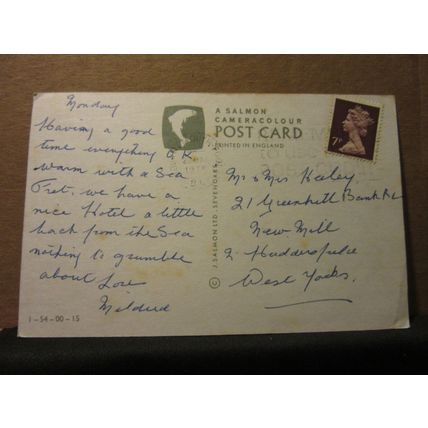 Monday
Having a good
time everything O.K
warm with a Sea
Fret, we have a
nice Hotel a little
back from the Sea
nothing to grumble
about Love
Mildred
1-54-00-15
A SALMON
CAMERACOLOUR
POST CARD
PRINTED IN ENGLAND
© J. SALMON LTD. SEVENOAKS
7P
Mr & Mrs Keeley
21 Greenhill Bank Rd
New Mill
Nr Huddersfield
West Yorks.